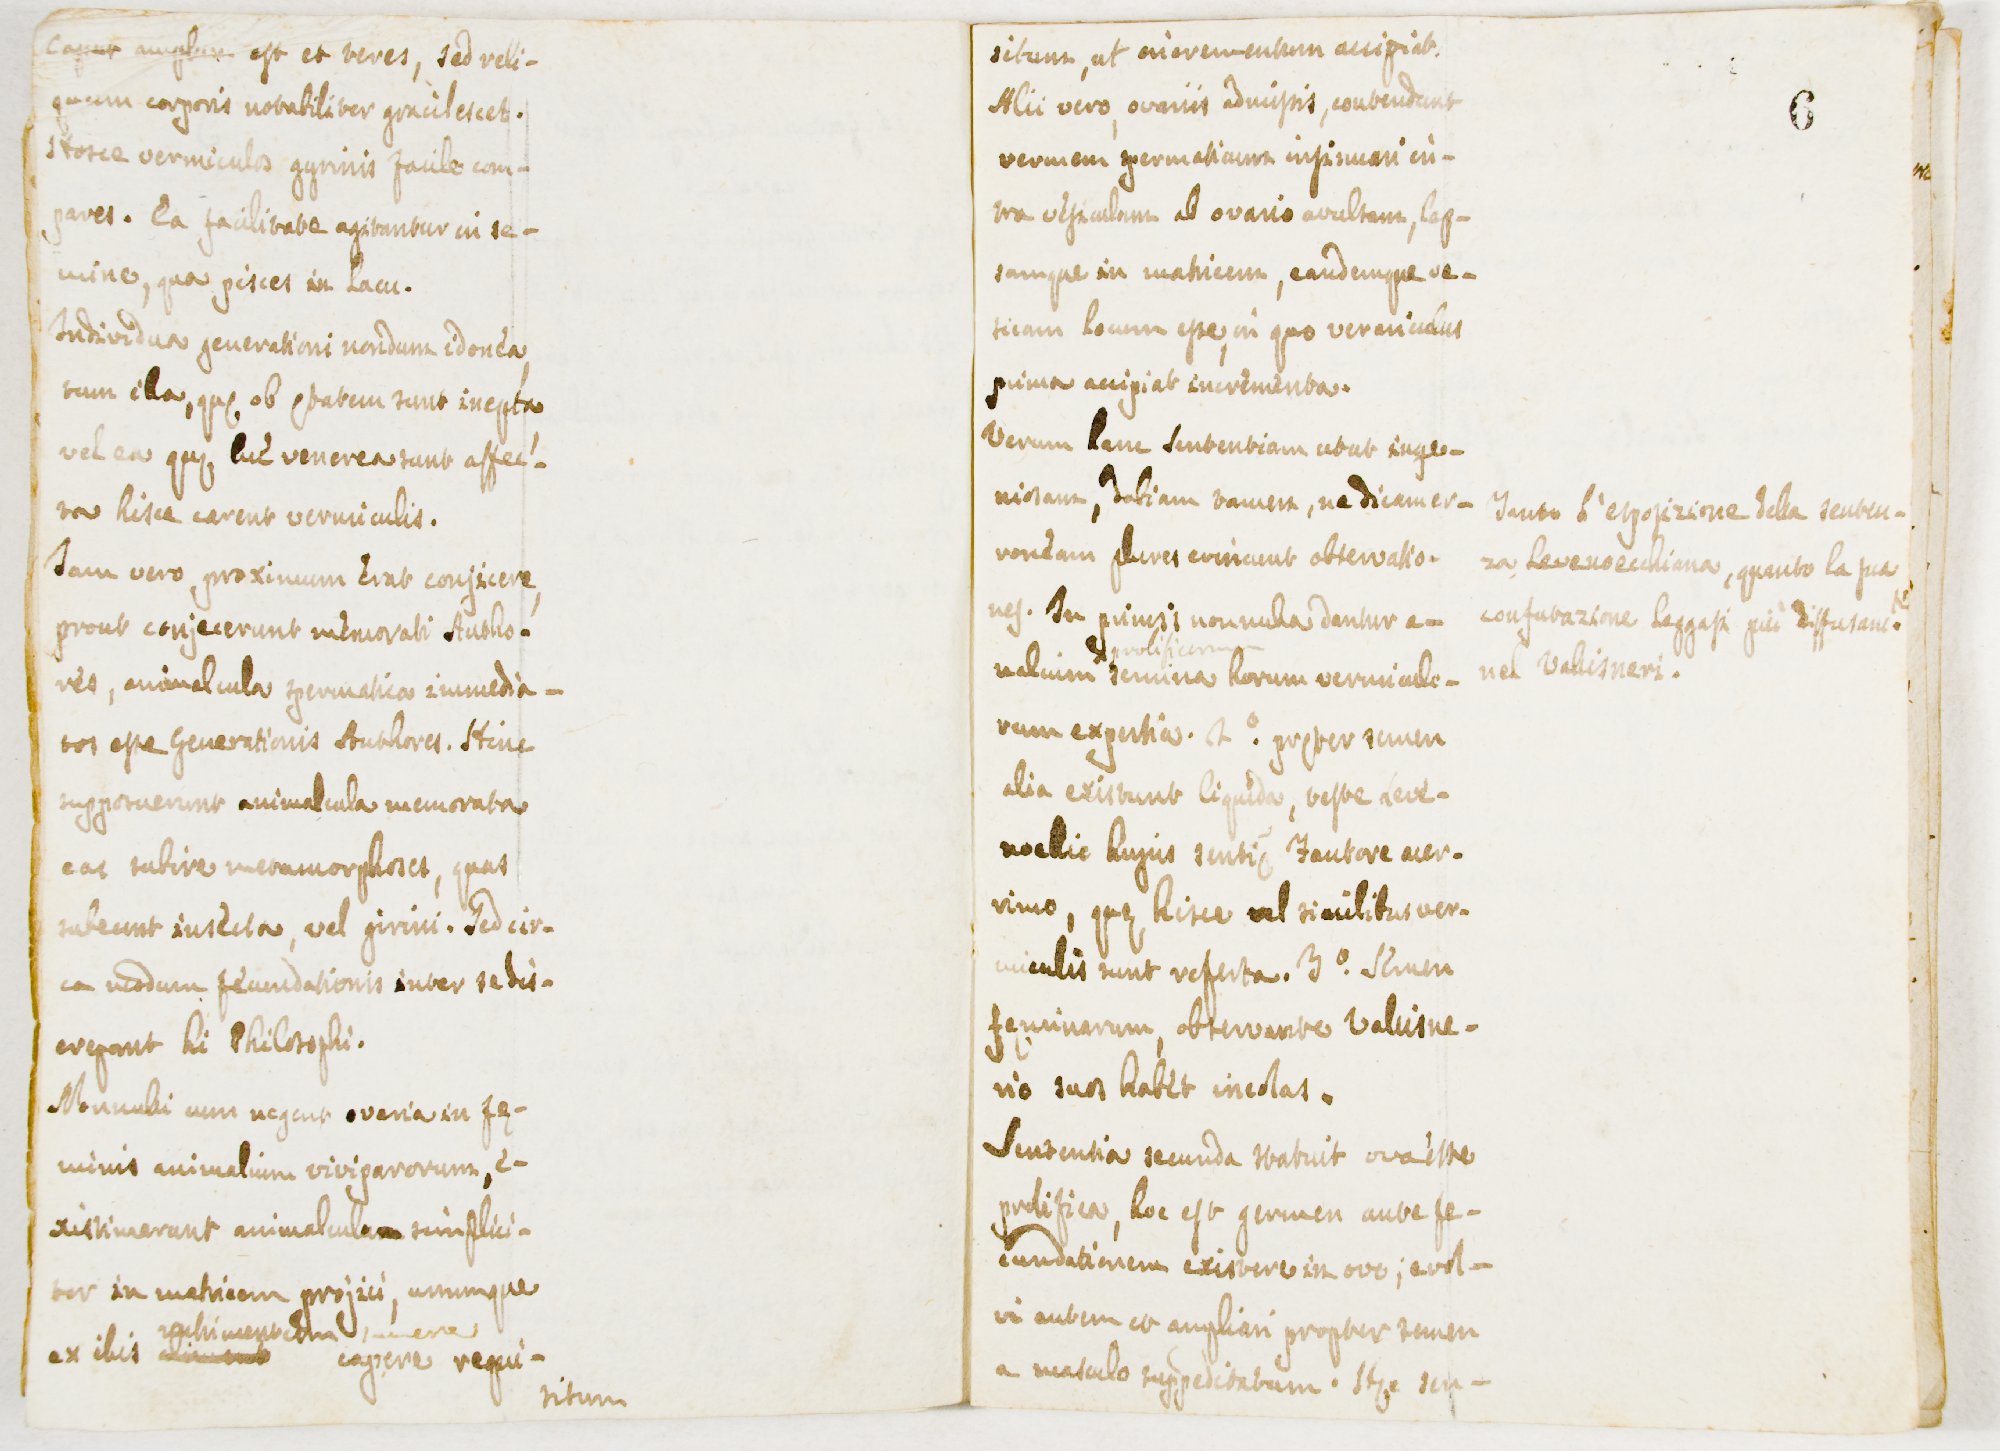 Caput amplum est et teres, sed reli-
quum corporis notabiliter gracilescet.
Hosce vermiculos gyrinis facile com-
pares. Ea facilitate agitantur in se-
mine, qua pisces in lacu.
Individua generationi nondum idonea,
tum illa, quę ob ętatem sunt inepta
vel ea quę luè venerea sunt affec-
ta hisce carent vermiculis.
Jam vero proximum erat conjicere,
prout conjecerunt memorati Autho-
res, animalcula spermatica immedia-
tos esse Generationis Authores. Hinc
supposuerunt animalcula memorata
eas subire metamorphoses, quas
subeunt insecta, vel girini. Sed cir-
ca modum fecundationis inter se dis-
crepant hi Philosophi.
Nonnulli cum negent ovaria in fę-
minis animalium viviparorum, e-
xistimerunt animalcula simplici-
ter in matricem projici, unumque
nutrimentum
ex illis capere requi-
situm
situm, ut incrementum accipiat.
Alii vero, ovariis admissis, contendunt
vermem spermaticum insinuari in-
tra vesiculam ab ovario avulsam, lap-
samque in matricem, eandemque ve-
sicam locum esse, in quo vermiculus
prima accipiat incrementa.
Verum hanc sententiam utut inge-
niosam, dubiam tamen, ne dicam er-
roneam plures evincunt observatio-
nes. In primis nonnulla dantur a-
prolificorum
nalium semina horum vermiculo-
rum expertia. 2º. pręter semen
alia existunt liquida, teste Leve-
noekic hujus sentię fautore acer-
rimo, quę hisce vel similibus ver-
miculis sunt referta. 3º. Semen
fęminarum, observante Valisne-
rio suos habet incolas.
Sententia secunda statuit ova esse
prolifica, hoc est germen ante fe-
cundationem existere in ovo; evol-
vi autem et ampliari propter semen
a masculo suppeditatum. Hęc sen-
6
Tanto l'esposizione della senten-
za Levenoecchiana, quanto la sua
confutazione leggasi più diffusam.te
nel Valisneri.